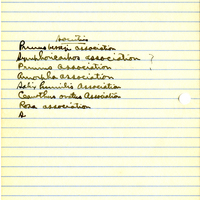 Societies
Prunus besseyi association
Symphoricarpos association ?
Prunus association
Amorpha association
Salix humilis Association
Ceanothus ovatus Association
Rosa association
A